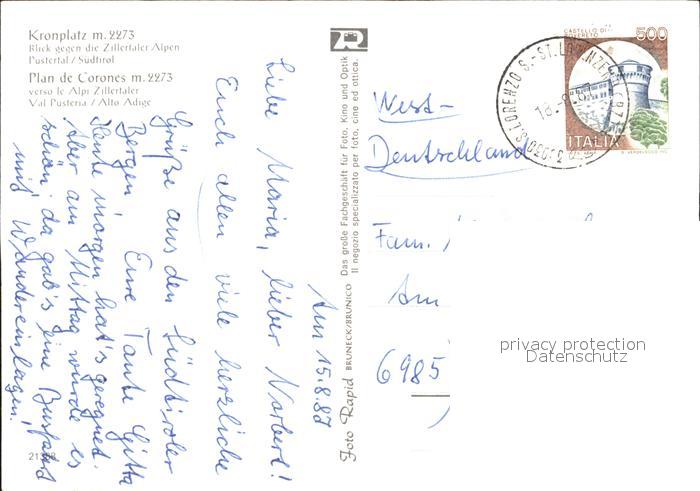 Kronplatz m. 2273
Blick gegen die Zillertaler Alpen
Pustertal / Südtirol
Plan de Corones m. 2273
verso le Alpi Zillertaler
Val Pusteria / Alto Adige
Am 15.8.87
Liebe Maria, lieber Norbert!
Euch allen viele herzliche
Grüße aus den Südtiroler
Bergen Eure Tante Gitta
Heute morgen hat's geregnet.
Aber am Mittag wurde es
schön, da gab's eine Busfahrt
mit Wandereinlagen!
Foto Rapid BRUNECK/BRUNICO Das große Fachgeschäft für Foto, Kino und Optik
Il negozio specializzato per foto, cine ed ottica.
CASTELLO DI ROVERETO
500
ITALIA
S. LORENZO S. - ST. LORENZEN
18.-8.87
West-
Deutschland
Fam.
Am
6985
privacy protection
Datenschutz